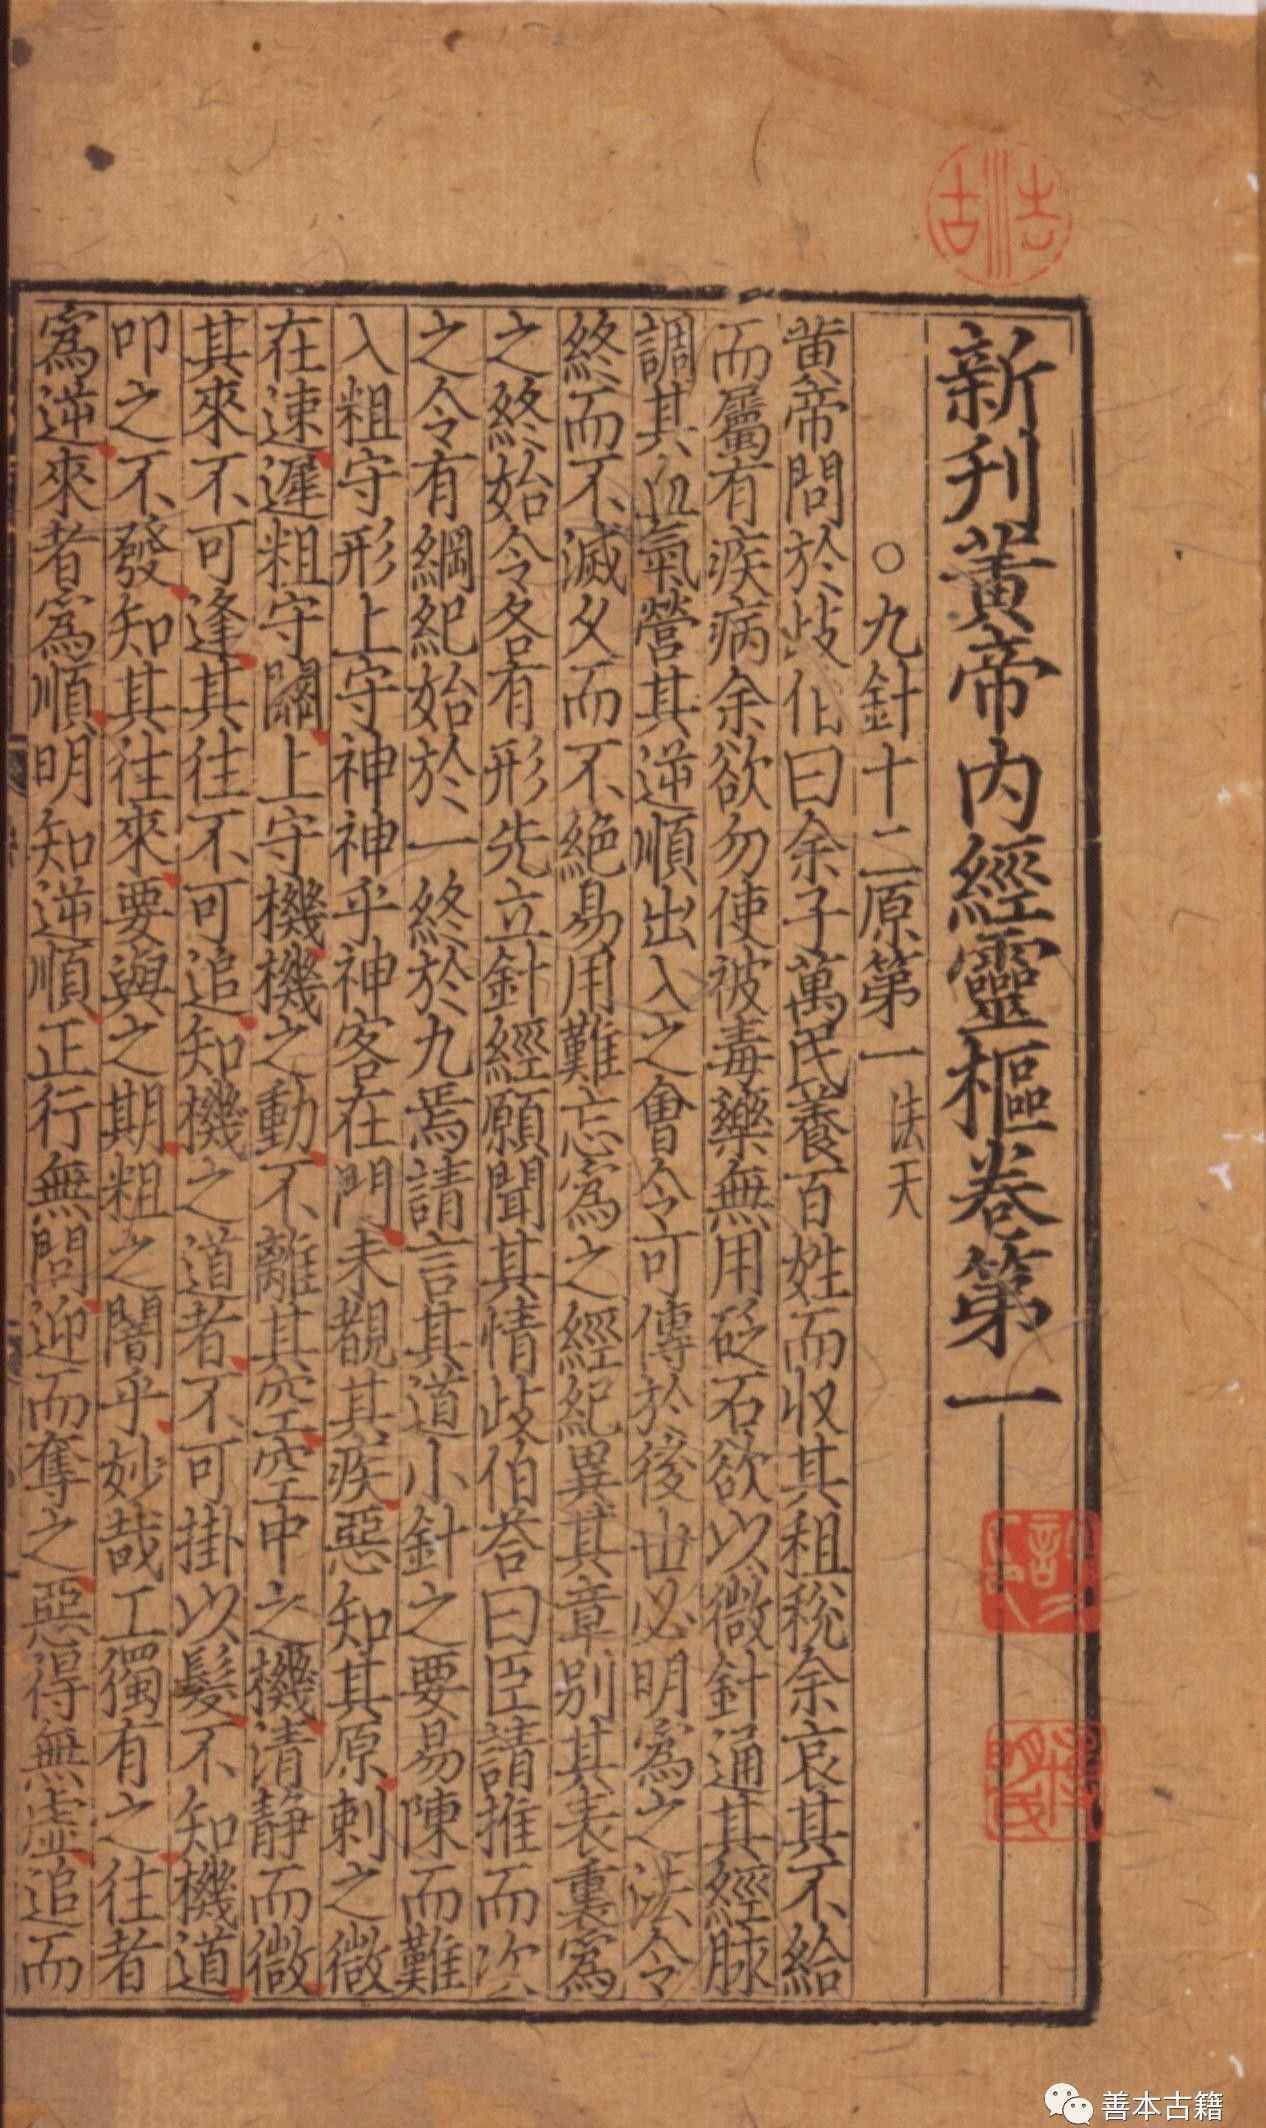 新刋黃帝内經靈樞卷第一
○九針十二原第一 法天
黄帝問於歧伯曰余子萬民養百姓而収其租稅余哀其不給
而屬有疾病余欲勿使被毒藥無用砭石欲以微針通其經脉
調其血氣營其逆順出入之會令可傳於後世必明爲之法令
終而不滅久而不絶易用難忘爲之經紀異其章别其表裏爲
之終始令各有形先立針經願聞其情歧伯荅曰臣請推而次
之令有綱紀始於一終於九焉請言其道小針之要易陳而難
入粗守形上守神神乎神客在門未覩其疾惡知其原刺之微
在速遲粗守關上守機機之動不離其空空中之機清靜而微
其來不可逢其往不可追知機之道者不可掛以髮不知機道
叩之不發知其往來要與之期粗之闇乎妙哉工獨有之往者
爲逆來者爲順明知逆順正行無問迎而奪之惡得無虚追而
善本古籍